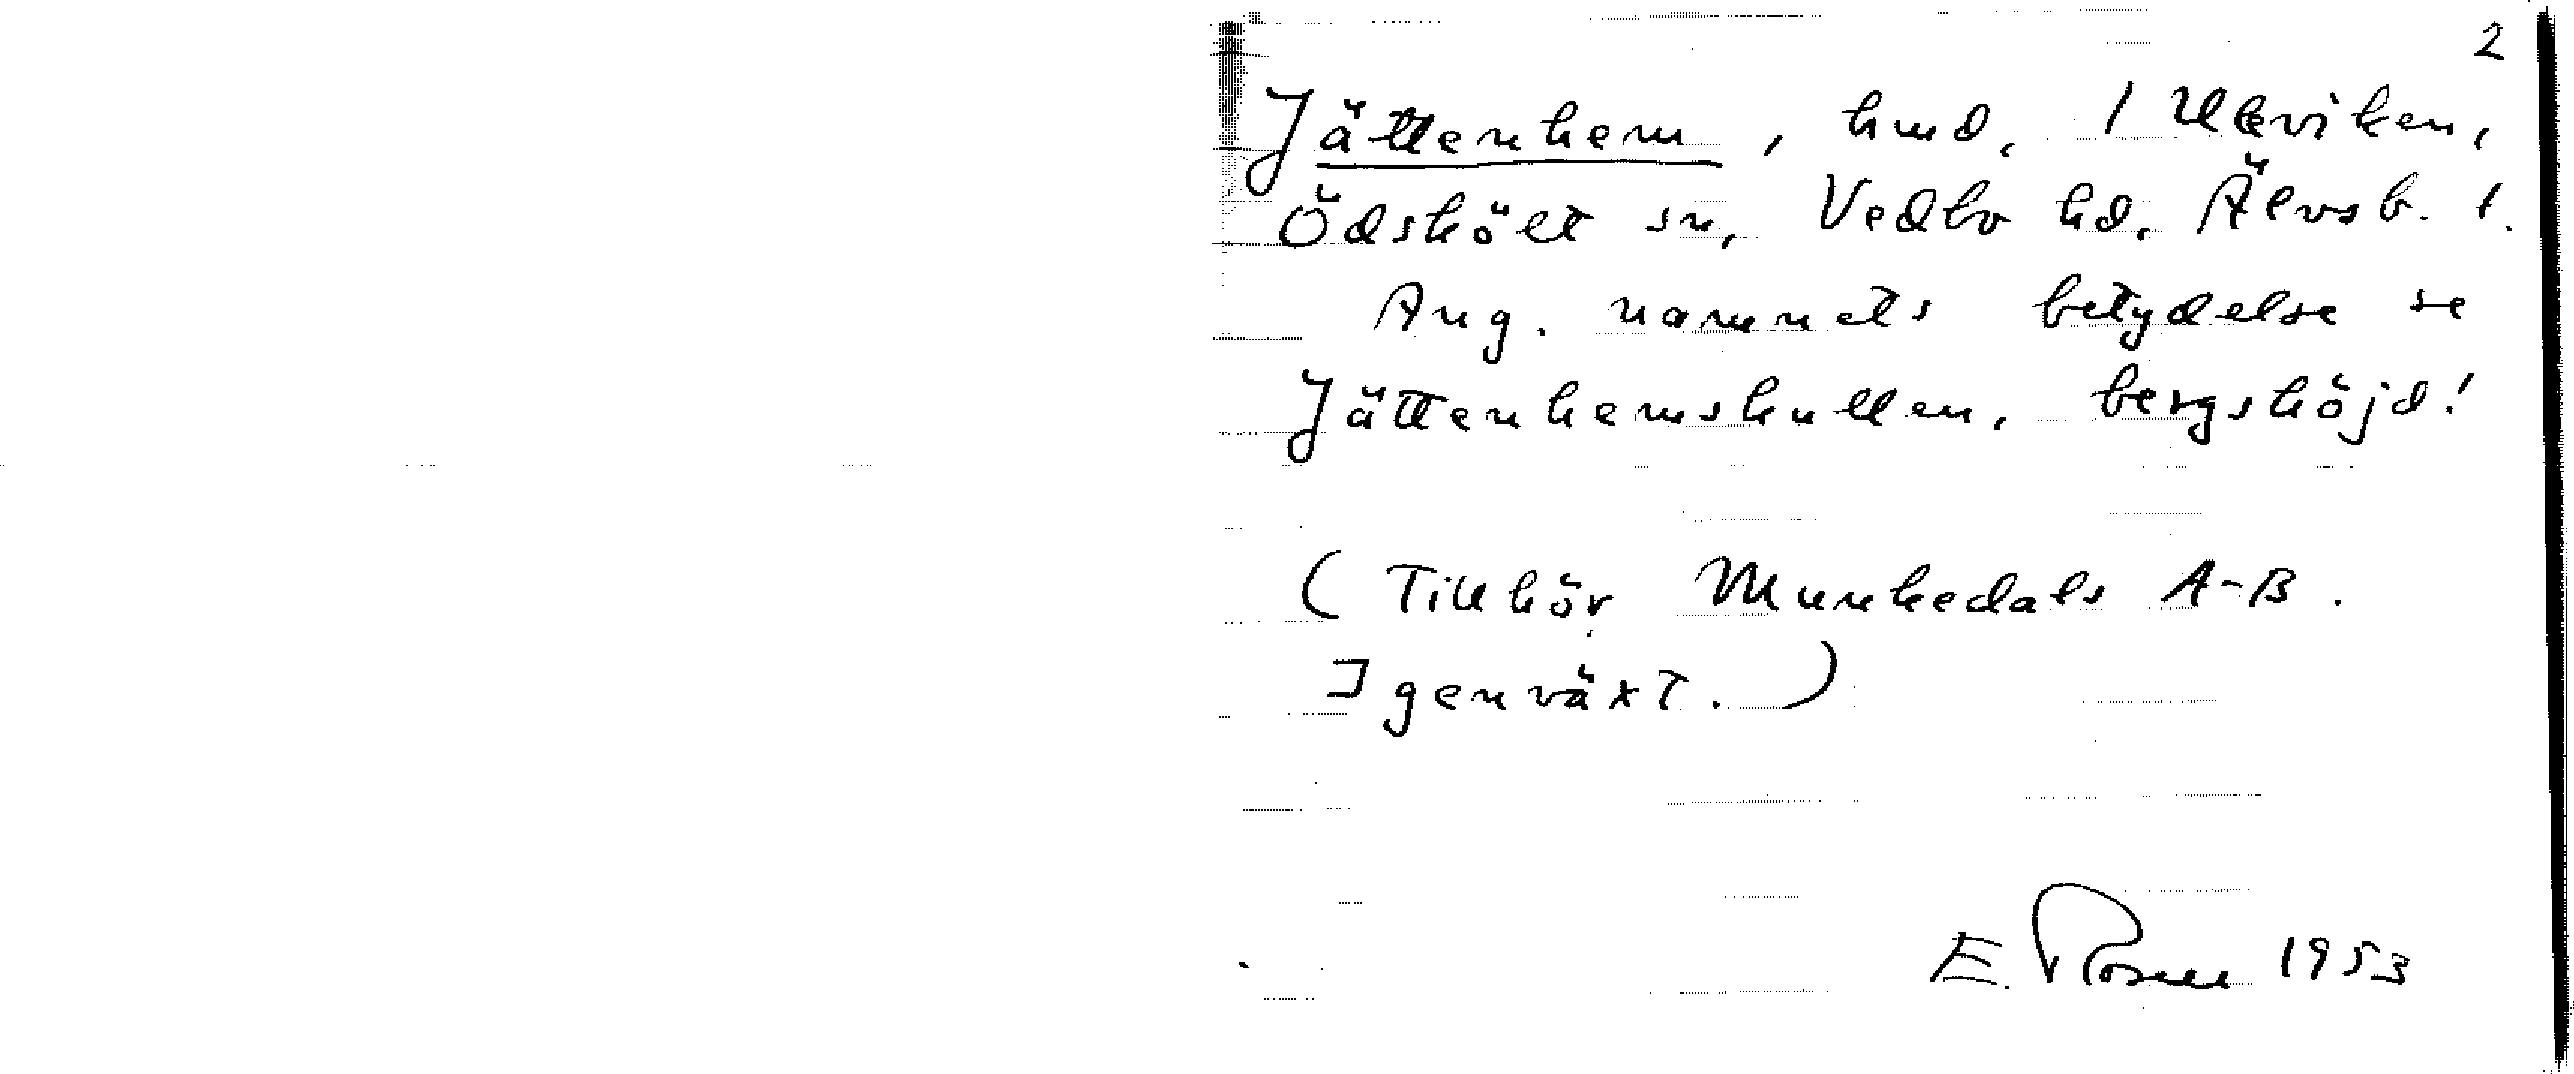 2
Jättenhem, hmd, 1 Ulvviken,
Ödskölt sn, Vedbo hd, Älvsb. l.
Ang. namnets betydelse se
Jättenhemskullen, bergshöjd!
(Tillhör Munkedals A-B.
Igenväxt.)
E. Rosell 1953